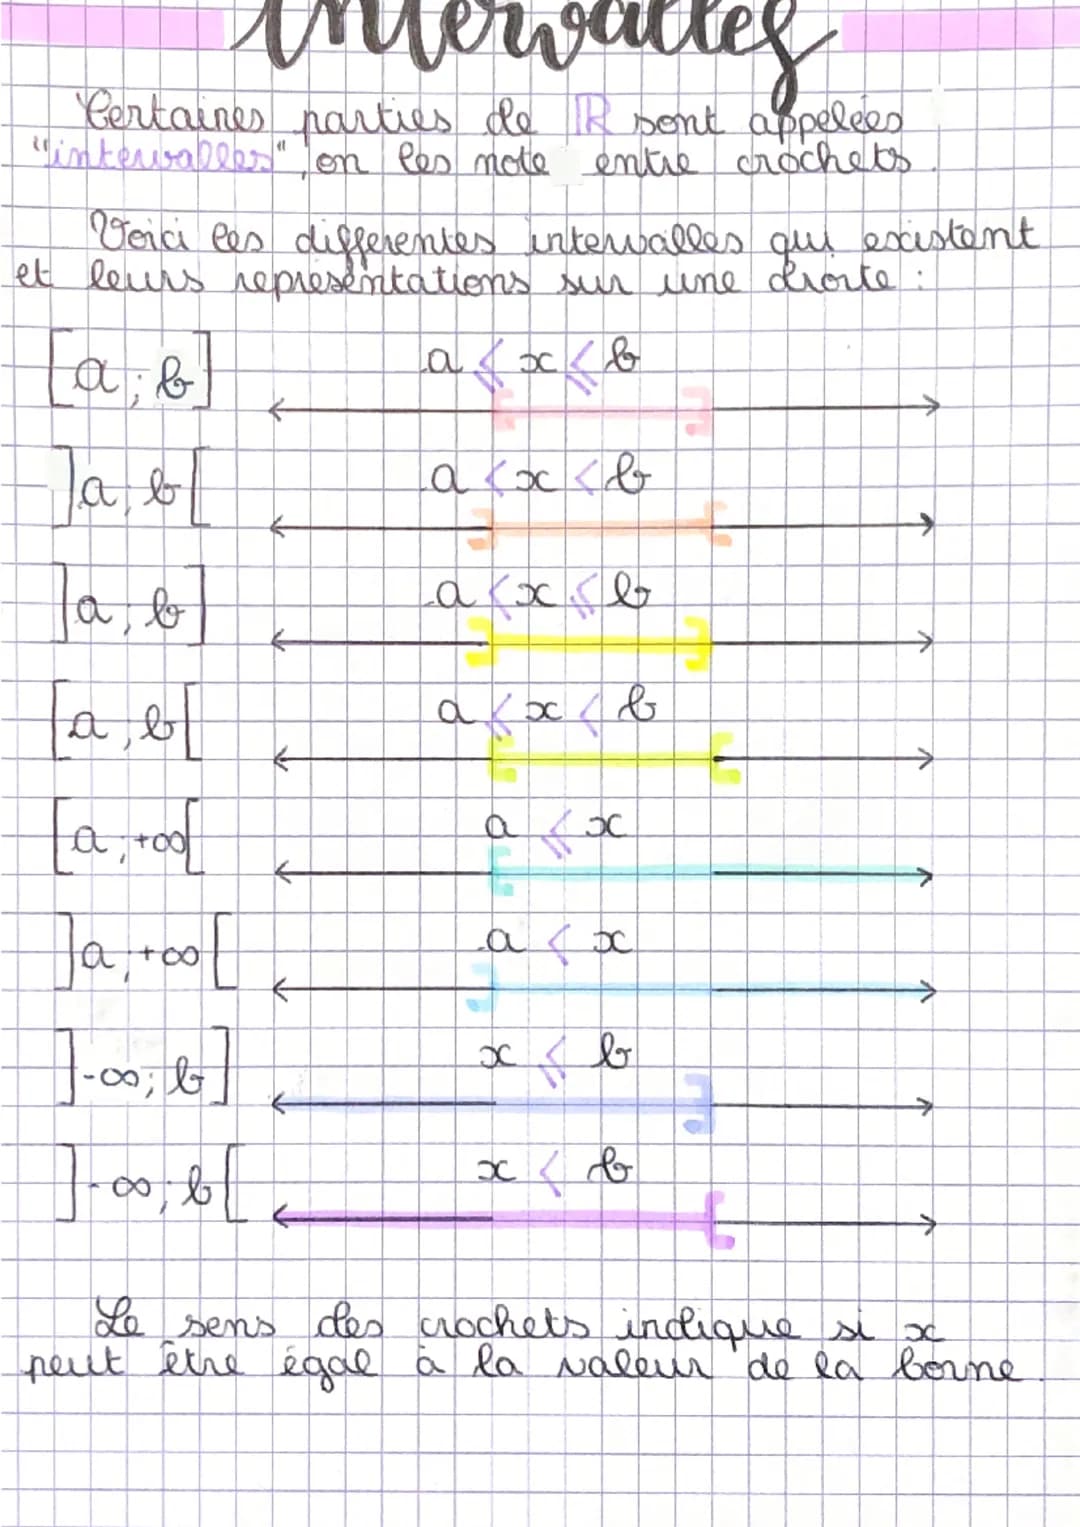 Intervalles
Certaines parties de ℝ sont appelées
"intervalles", on les note entre crochets.
Voici les differentes intervalles qui existent
et leurs représentations sur une droite :
[a ; b] a ⩽ x ⩽ b
]a ; b[ a < x < b
]a ; b] a < x ⩽ b
[a ; b[ a ⩽ x < b
[a ; +∞[ a ⩽ x
]a ; +∞[ a < x
]-∞ ; b] x ⩽ b
]-∞ ; b[ x < b
Le sens des crochets indique si x
peut être égal à la valeur de la borne.